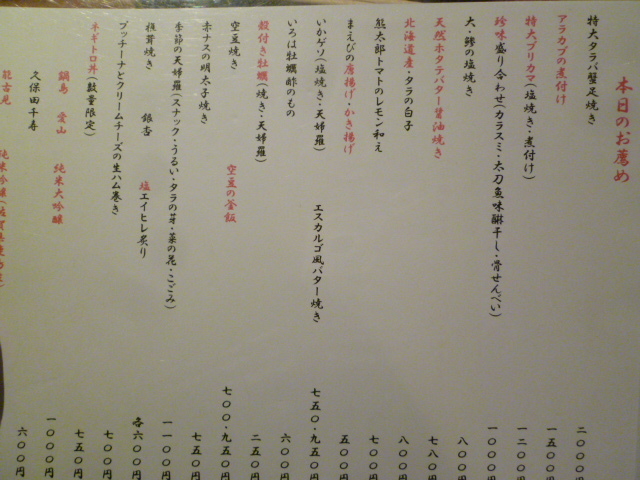 本日のお薦め
特大タラバ蟹足焼き 二〇〇〇円
アラカブの煮付け 一五〇〇円
特大ブリカマ(塩焼き・煮付け) 一二〇〇円
珍味盛り合わせ(カラスミ・太刀魚味醂干し・骨せんべい) 一〇〇〇円
大・鯵の塩焼き 八〇〇円
天然ホタテバター醤油焼き 七八〇円
北海道産・タラの白子 八〇〇円
熊太郎トマトのレモン和え 七〇〇円
まえびの唐揚げ・かき揚げ 五〇〇円
いかゲソ(塩焼き・天婦羅) エスカルゴ風バター焼き 七五〇・九五〇円
いろは牡蠣酢のもの 六〇〇円
殻付き牡蠣(焼き・天婦羅) 二五〇円
空豆焼き 空豆の釜飯 七〇〇・九五〇円
赤ナスの明太子焼き 七五〇円
季節の天婦羅(スナック・うるい・タラの芽・菜の花・こごみ) 一一〇〇円
椎茸焼き 銀杏 塩エイヒレ炙り 各六〇〇円
プッチーナとクリームチーズの生ハム巻き 七〇〇円
ネギトロ丼(数量限定) 七五〇円
鍋島 愛山 純米大吟醸 一〇〇〇円
久保田千寿 六〇〇円
純米吟醸(佐賀県